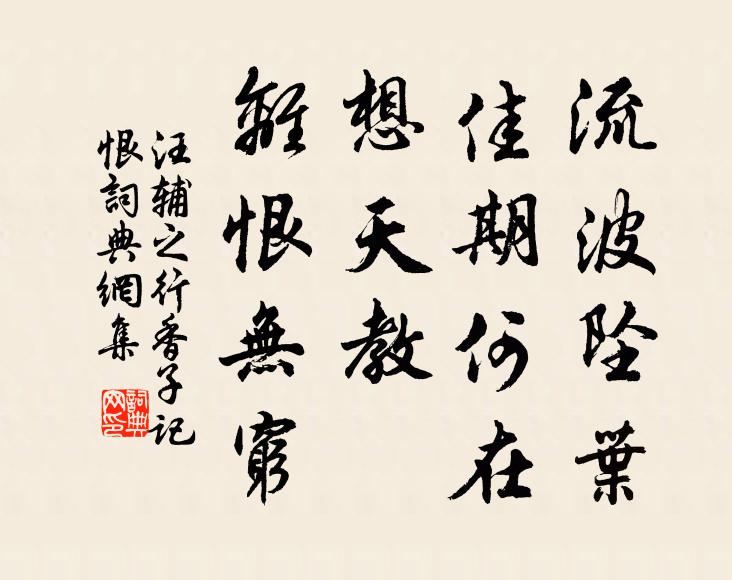 流波墜葉
佳期何在
想天教
離恨無窮
汪輔之行香子記
恨詞典網集
詞典
网印